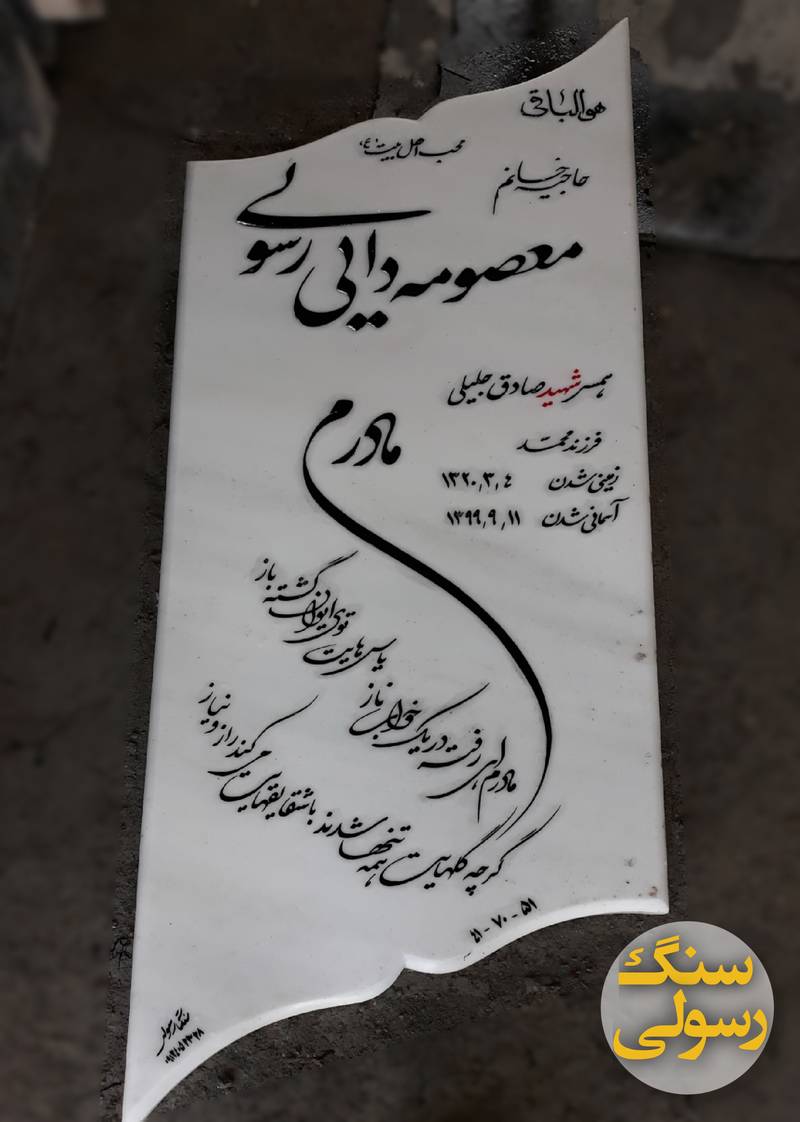 هوالباقی
محب اهل بیت (ع)
حاجیه خانم
معصومه دایی رسولی
همسر شهید صادق جلیلی
فرزند محمد
زمینی شدن ۱۳۲۰,۳,۴
آسمانی شدن ۱۳۹۹,۹,۱۱
مادرم
یاس هایت توی ایوان گشته باز
مادرم ای رفته در یک خواب ناز
گرچه گلهایت همه تنها شدند با شقایقهایی می کند راز و نیاز
۴۱ - ۷۰ - ۵۱
سنگ رسولی